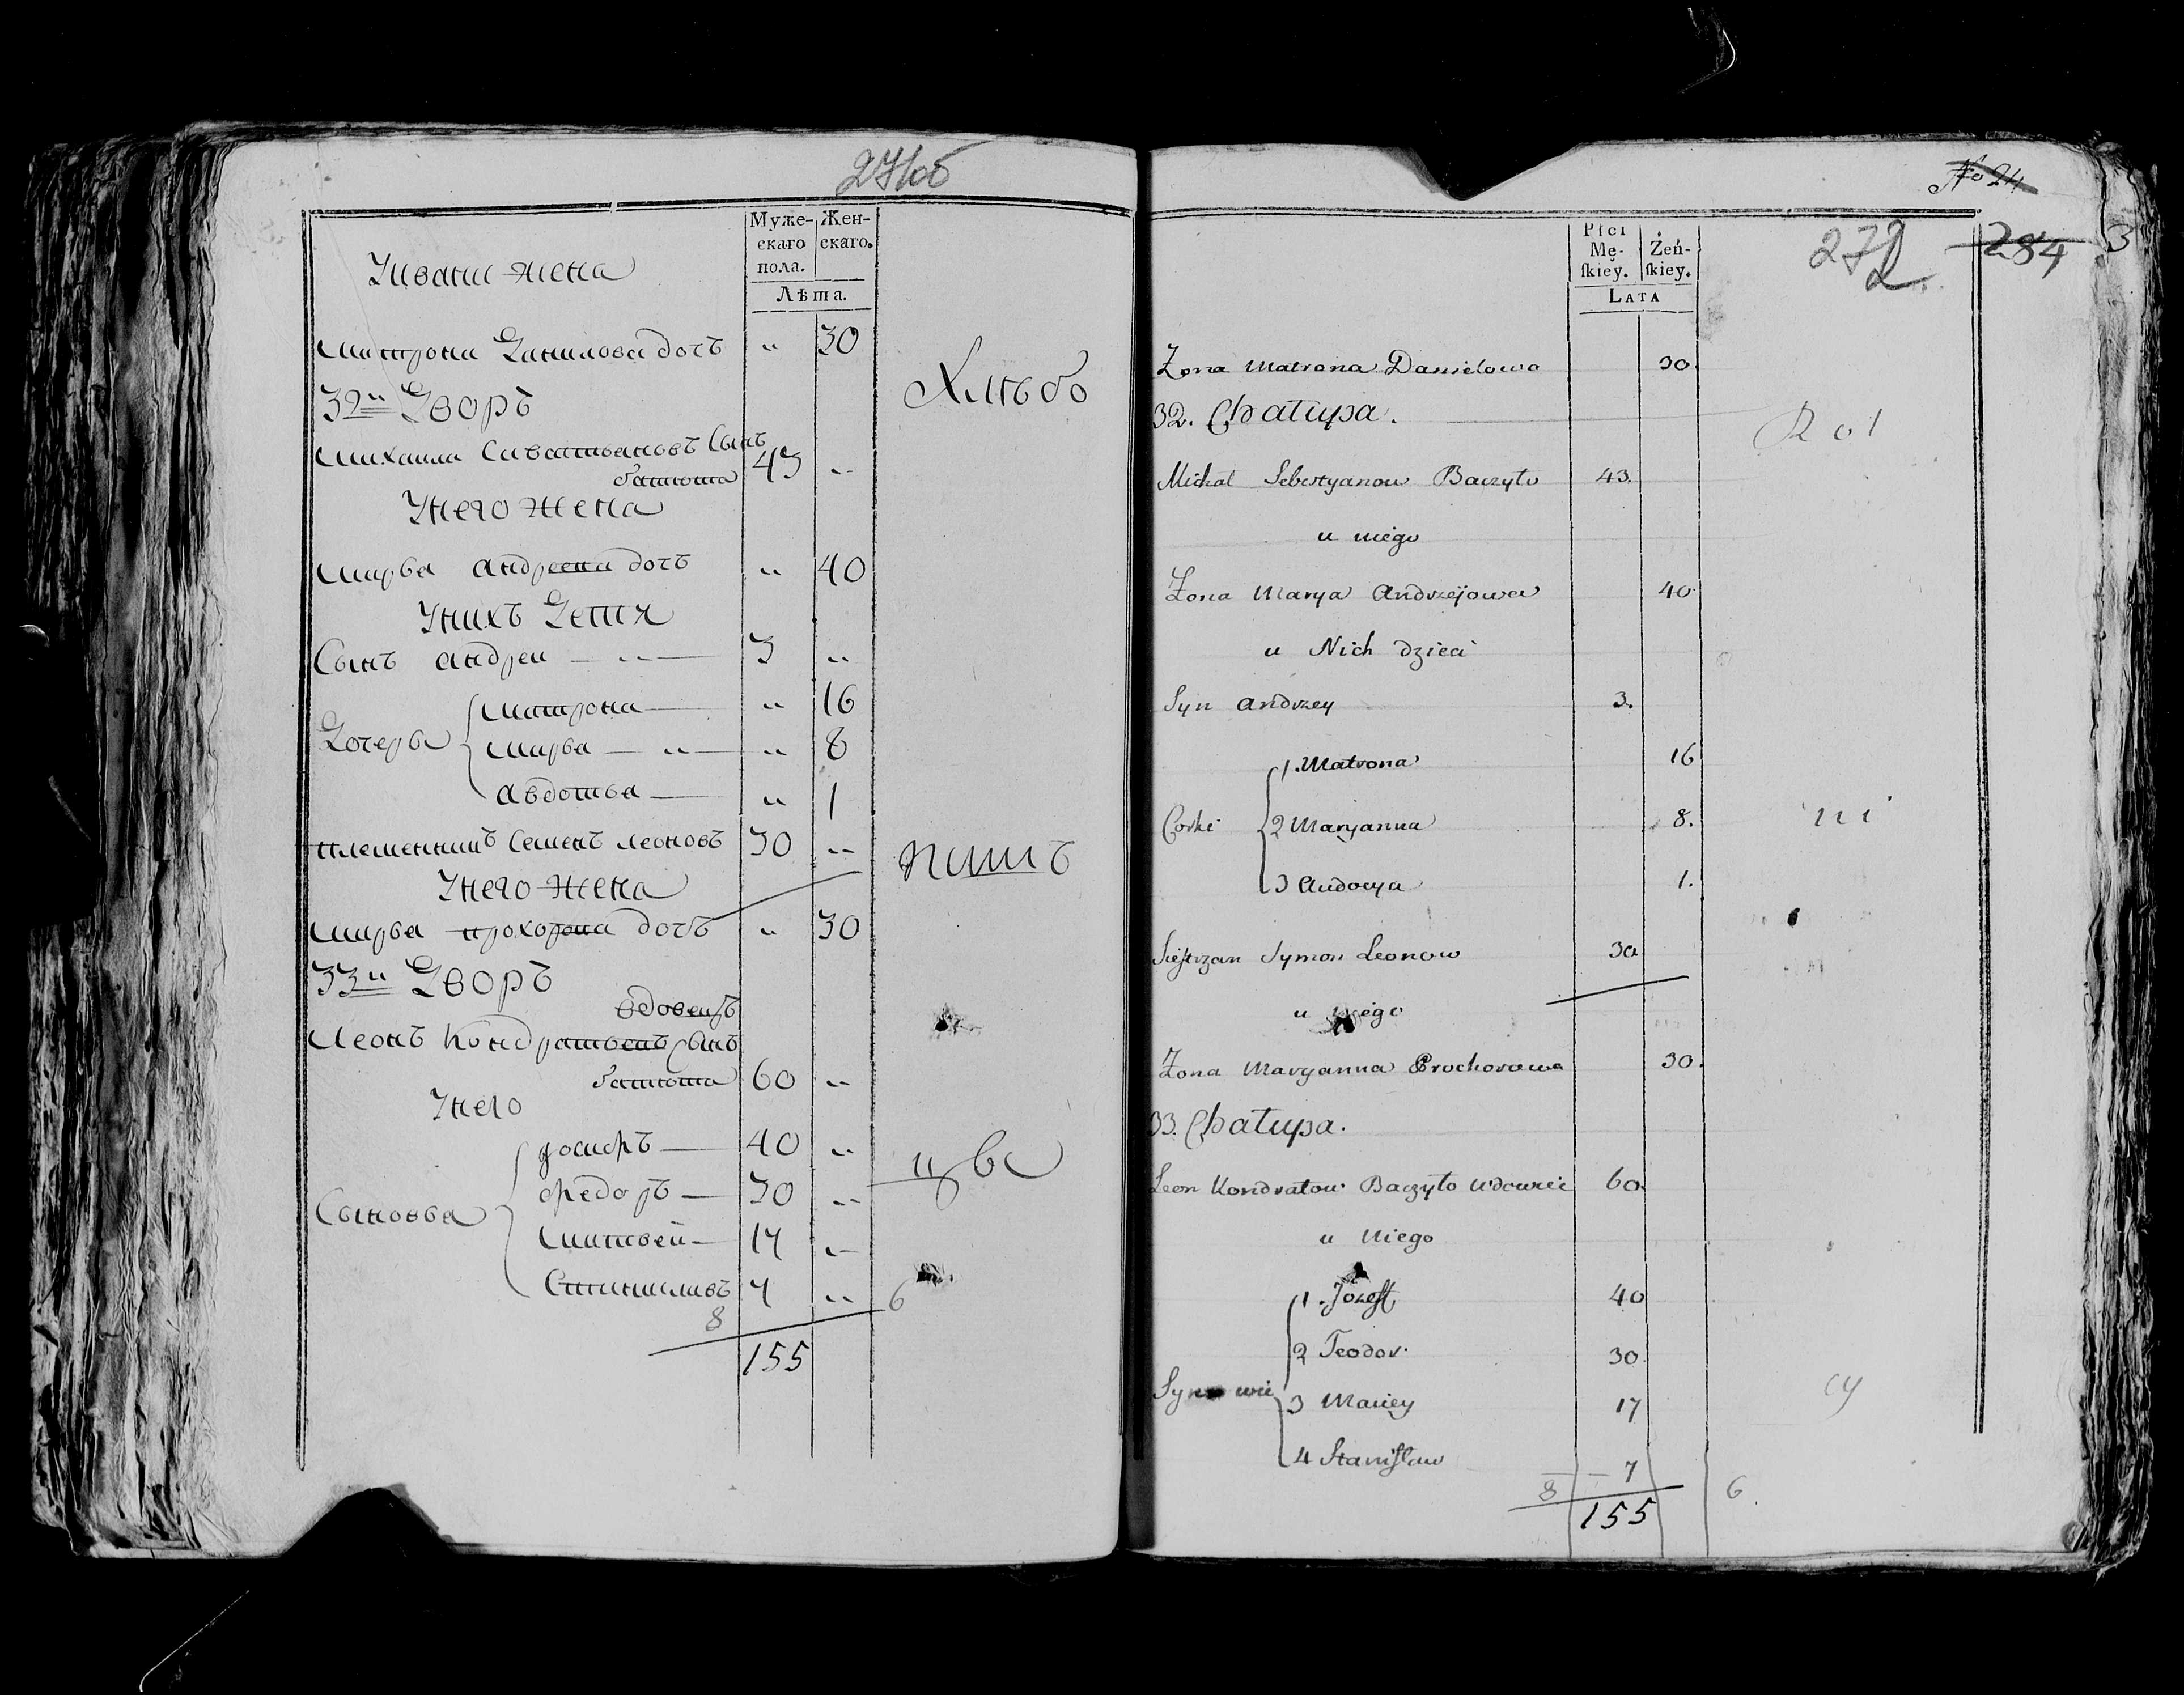 271об
Муже-
скаго
пола.
Жен-
скаго.
Лѣта.
Ивана жена
матрона Данилова дочь " 30
32й Дворъ
михаила Севастьановъ Сынъ
43 "
У него жена
марья андреева дочь " 40
У нихъ Детя
Сынъ андреи 3 "
Дочерьи
матрона " 16
марья " 8
авдотья " 1
племенникъ Семенъ леоновъ 30 "
У него жена
марья прохорова дочь " 30
33й Дворъ
вдовецъ
Леонъ Кондратьевъ Сынъ
60 "
У него
Сыновья
иосифъ 40 "
федоръ 30 "
матвей 17 "
Станиславъ 7 "
8 6
155
Хлѣбо
паш
цы
No 24
272
284
3
Płci
Mę-
skiey.
Żeń-
skiey.
LATA
Zona Matrona Danielowa 30
32. Chatupa.
Michal Sebestyanow Baczyło 43.
u niego
Zona Marya Andrzejowa 40
u Nich dzieci
Syn Andrzey 3.
Corki
1. Matrona 16
2 Maryanna 8.
3 Audocya 1.
Siestrzan Symon Leonow 30
u niego
Zona Maryanna Prochorowa 30.
33. Chatupa.
Leon Kondratow Baczyło wdowiec 60
u Niego
Synowie
1. Jozeff 40
2 Teodor 30
3 Maciey 17
4 Stanisław 7
8 6
155
Rol
ni
cy